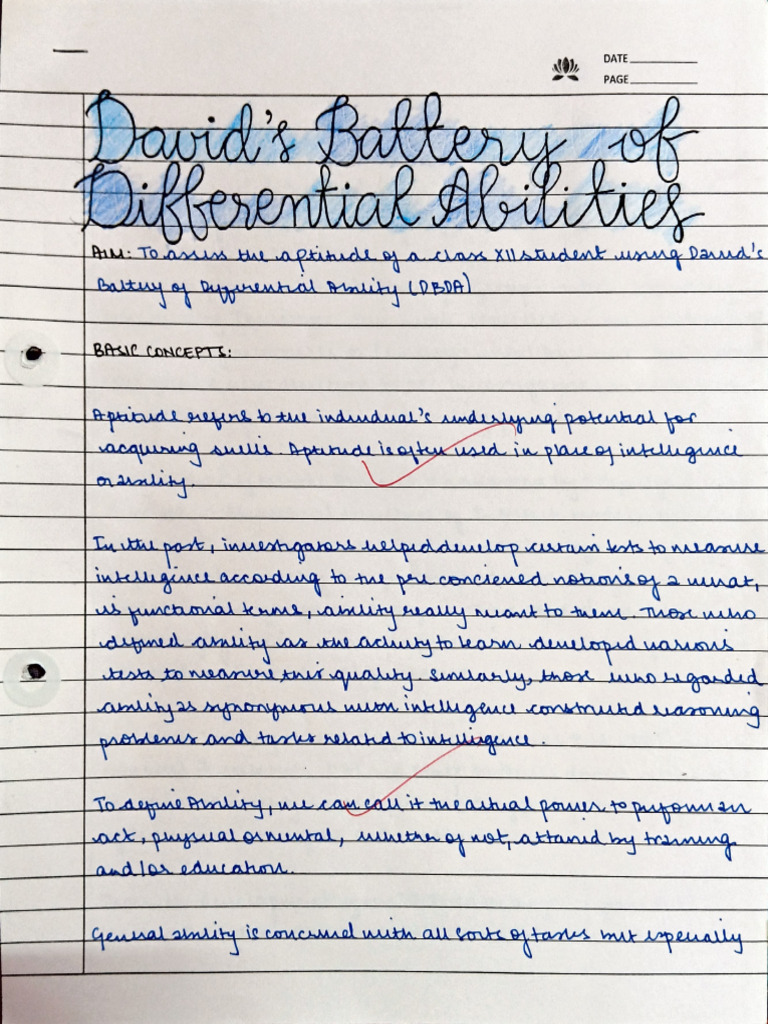 DATE
PAGE
David's Battery of
Differential Abilities
AIM: To assess the aptitude of a class XII student using David's
Battery of Differential Ability (DBDA)
BASIC CONCEPTS:
Aptitude refers to the individual's underlying potential for
acquiring skills. Aptitude is often used in place of intelligence
or ability.
In the past, investigators helped develop certain tests to measure
intelligence according to the pre concieved notions of what,
is functional terms, ability really meant to them. Those who
defined ability as the activity to learn developed various
tests to measure this quality. Similarly, those who regarded
ability as synonymous with intelligence constructed reasoning
problems and tasks related to intelligence.
To define Ability, we can call it the actual power to perform an
act, physical or mental, whether or not, attained by training
and/or education.
General ability is concerned with all sorts of tasks but especially